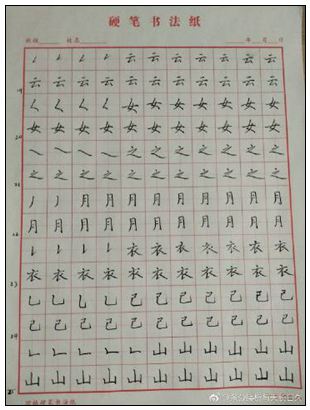 硬笔书法纸
姓名 年 月 日
云 云 云 云 云 云 云
云 云 云 云 云 云 云 云 云 云 云
女 女 女 女 女 女 女
女 女 女 女 女 女 女 女 女 女 女
之 之 之 之 之 之 之
之 之 之 之 之 之 之 之 之 之 之
月 月 月 月 月 月 月 月 月
月 月 月 月 月 月 月 月 月 月 月
衣 衣 衣 衣 衣 衣 衣
衣 衣 衣 衣 衣 衣 衣 衣 衣 衣 衣
己 己 己 己 己 己 己
己 己 己 己 己 己 己 己 己 己 己
山 山 山 山 山 山 山
山 山 山 山 山 山 山 山 山 山 山